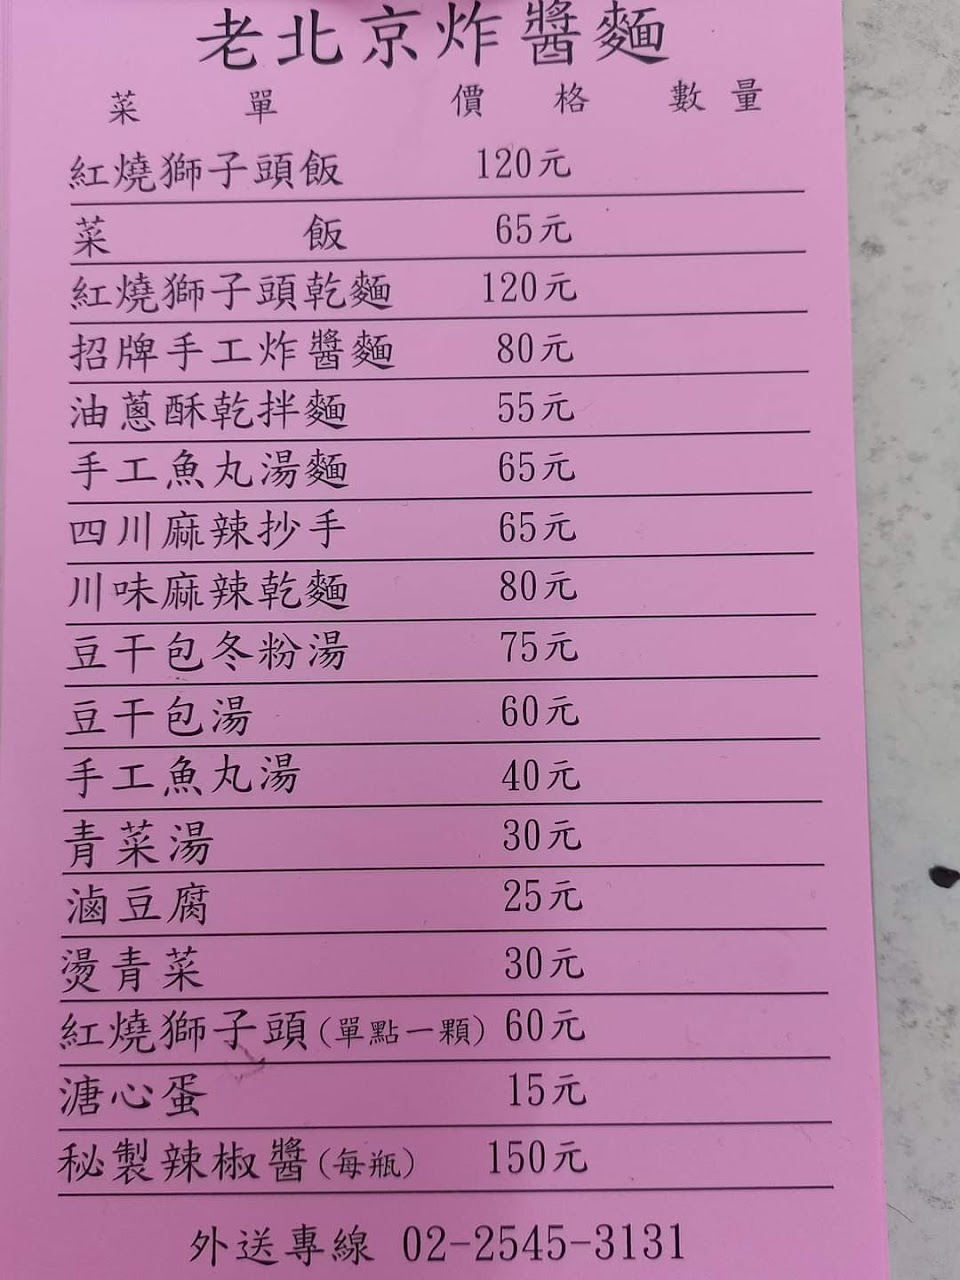 老北京炸醬麵
菜單 價格 數量
紅燒獅子頭飯 120元
菜飯 65元
紅燒獅子頭乾麵 120元
招牌手工炸醬麵 80元
油蔥酥乾拌麵 55元
手工魚丸湯麵 65元
四川麻辣抄手 65元
川味麻辣乾麵 80元
豆干包冬粉湯 75元
豆干包湯 60元
手工魚丸湯 40元
青菜湯 30元
滷豆腐 25元
燙青菜 30元
紅燒獅子頭(單點一顆) 60元
溏心蛋 15元
秘製辣椒醬(每瓶) 150元
外送專線 02-2545-3131